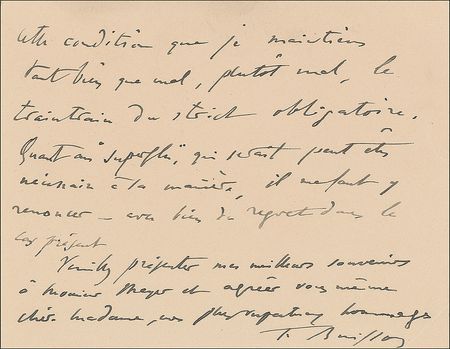 cette condition que je maintiens
tant bien que mal, plutôt mal, le
traintrain du strict obligatoire.
Quant au "superflu", qui serait peut être
nécessaire à sa manière, il me faut y
renoncer – avec bien du regret dans le
cas présent
Veuillez présenter mes meilleurs souvenirs
à Monsieur Meyer et agréer vous même
chère madame, mes plus respectueux hommages
F. Buisson